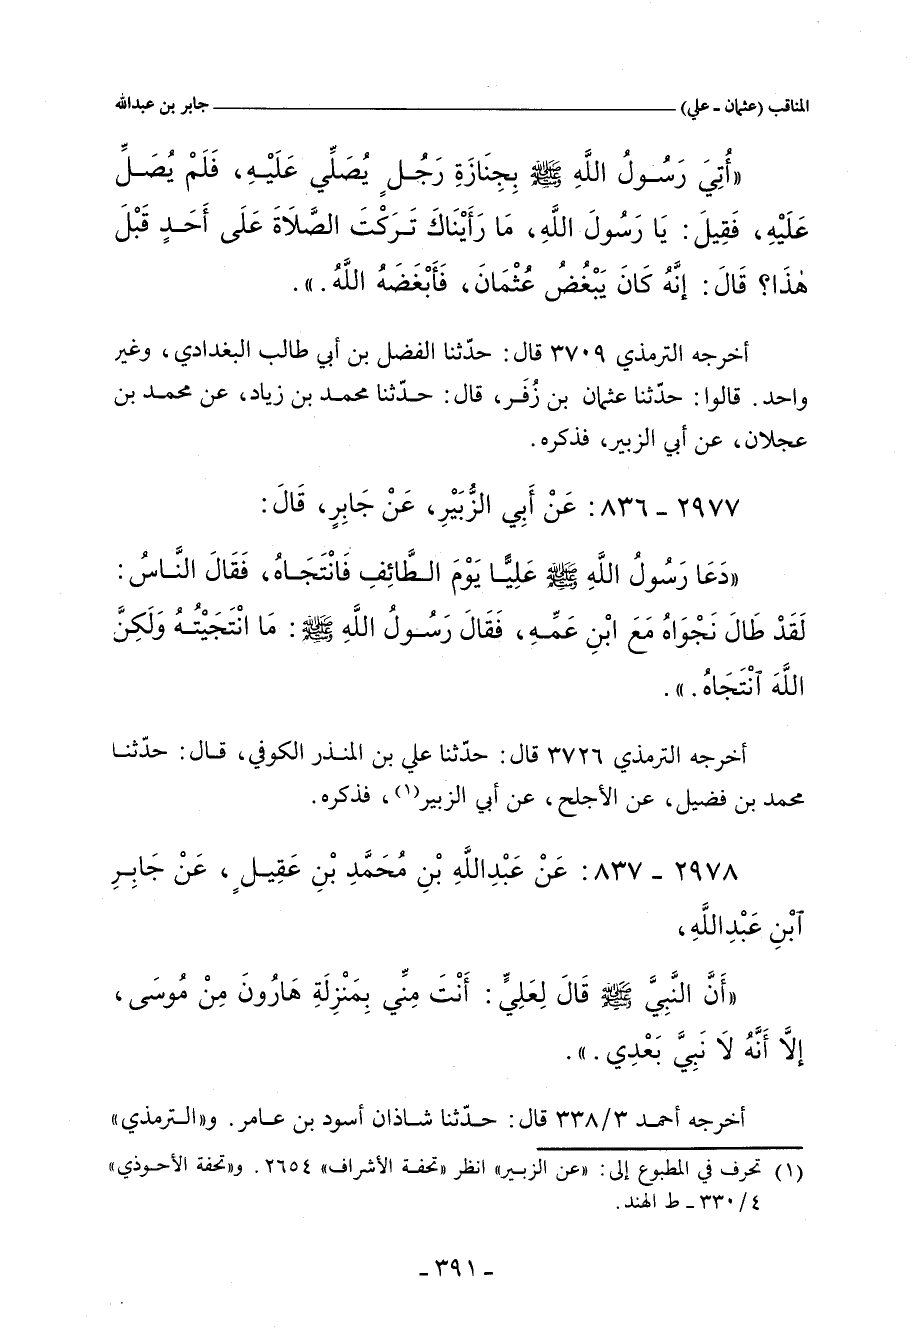 المناقب (عثمان - علي) ــــــــــــــــ جابر بن عبدالله
«أُتِيَ رَسُولُ اللَّهِ ﷺ بِجِنَازَةِ رَجُلٍ يُصَلِّي عَلَيْهِ، فَلَمْ يُصَلِّ
عَلَيْهِ، فَقِيلَ: يَا رَسُولَ اللَّهِ، مَا رَأَيْنَاكَ تَرَكْتَ الصَّلَاةَ عَلَى أَحَدٍ قَبْلَ
هٰذَا؟ قَالَ: إِنَّهُ كَانَ يَبْغُضُ عُثْمَانَ، فَأَبْغَضَهُ اللَّهُ.».
أخرجه الترمذي ٣٧٠٩ قال: حدّثنا الفضل بن أبي طالب البغدادي، وغير
واحد. قالوا: حدّثنا عثمان بن زُفَر، قال: حدّثنا محمد بن زياد، عن محمد بن
عجلان، عن أبي الزبير، فذكره.
٢٩٧٧ - ٨٣٦: عَنْ أَبِي الزُّبَيْرِ، عَنْ جَابِرٍ، قَالَ:
«دَعَا رَسُولُ اللَّهِ ﷺ عَلِيًّا يَوْمَ الطَّائِفِ فَانْتَجَاهُ، فَقَالَ النَّاسُ:
لَقَدْ طَالَ نَجْوَاهُ مَعَ ابْنِ عَمِّهِ، فَقَالَ رَسُولُ اللَّهِ ﷺ: مَا انْتَجَيْتُهُ وَلَكِنَّ
اللَّهَ ٱنْتَجَاهُ.».
أخرجه الترمذي ٣٧٢٦ قال: حدّثنا علي بن المنذر الكوفي، قال: حدّثنا
محمد بن فضيل، عن الأجلح، عن أبي الزبير(١)، فذكره.
٢٩٧٨ - ٨٣٧: عَنْ عَبْدِاللَّهِ بْنِ مُحَمَّدِ بْنِ عَقِيلٍ، عَنْ جَابِرِ
ٱبْنِ عَبْدِاللَّهِ،
«أَنَّ النَّبِيَّ ﷺ قَالَ لِعَلِيٍّ: أَنْتَ مِنِّي بِمَنْزِلَةِ هَارُونَ مِنْ مُوسَى،
إِلَّا أَنَّهُ لَا نَبِيَّ بَعْدِي.».
أخرجه أحمد ٣/٣٣٨ قال: حدّثنا شاذان أسود بن عامر. و«الترمذي»
(١) تحرف في المطبوع إلى: «عن الزبير» انظر «تحفة الأشراف» ٢٦٥٤. و«تحفة الأحوذي»
٤/٣٣٠ - ط الهند.
- ٣٩١ -